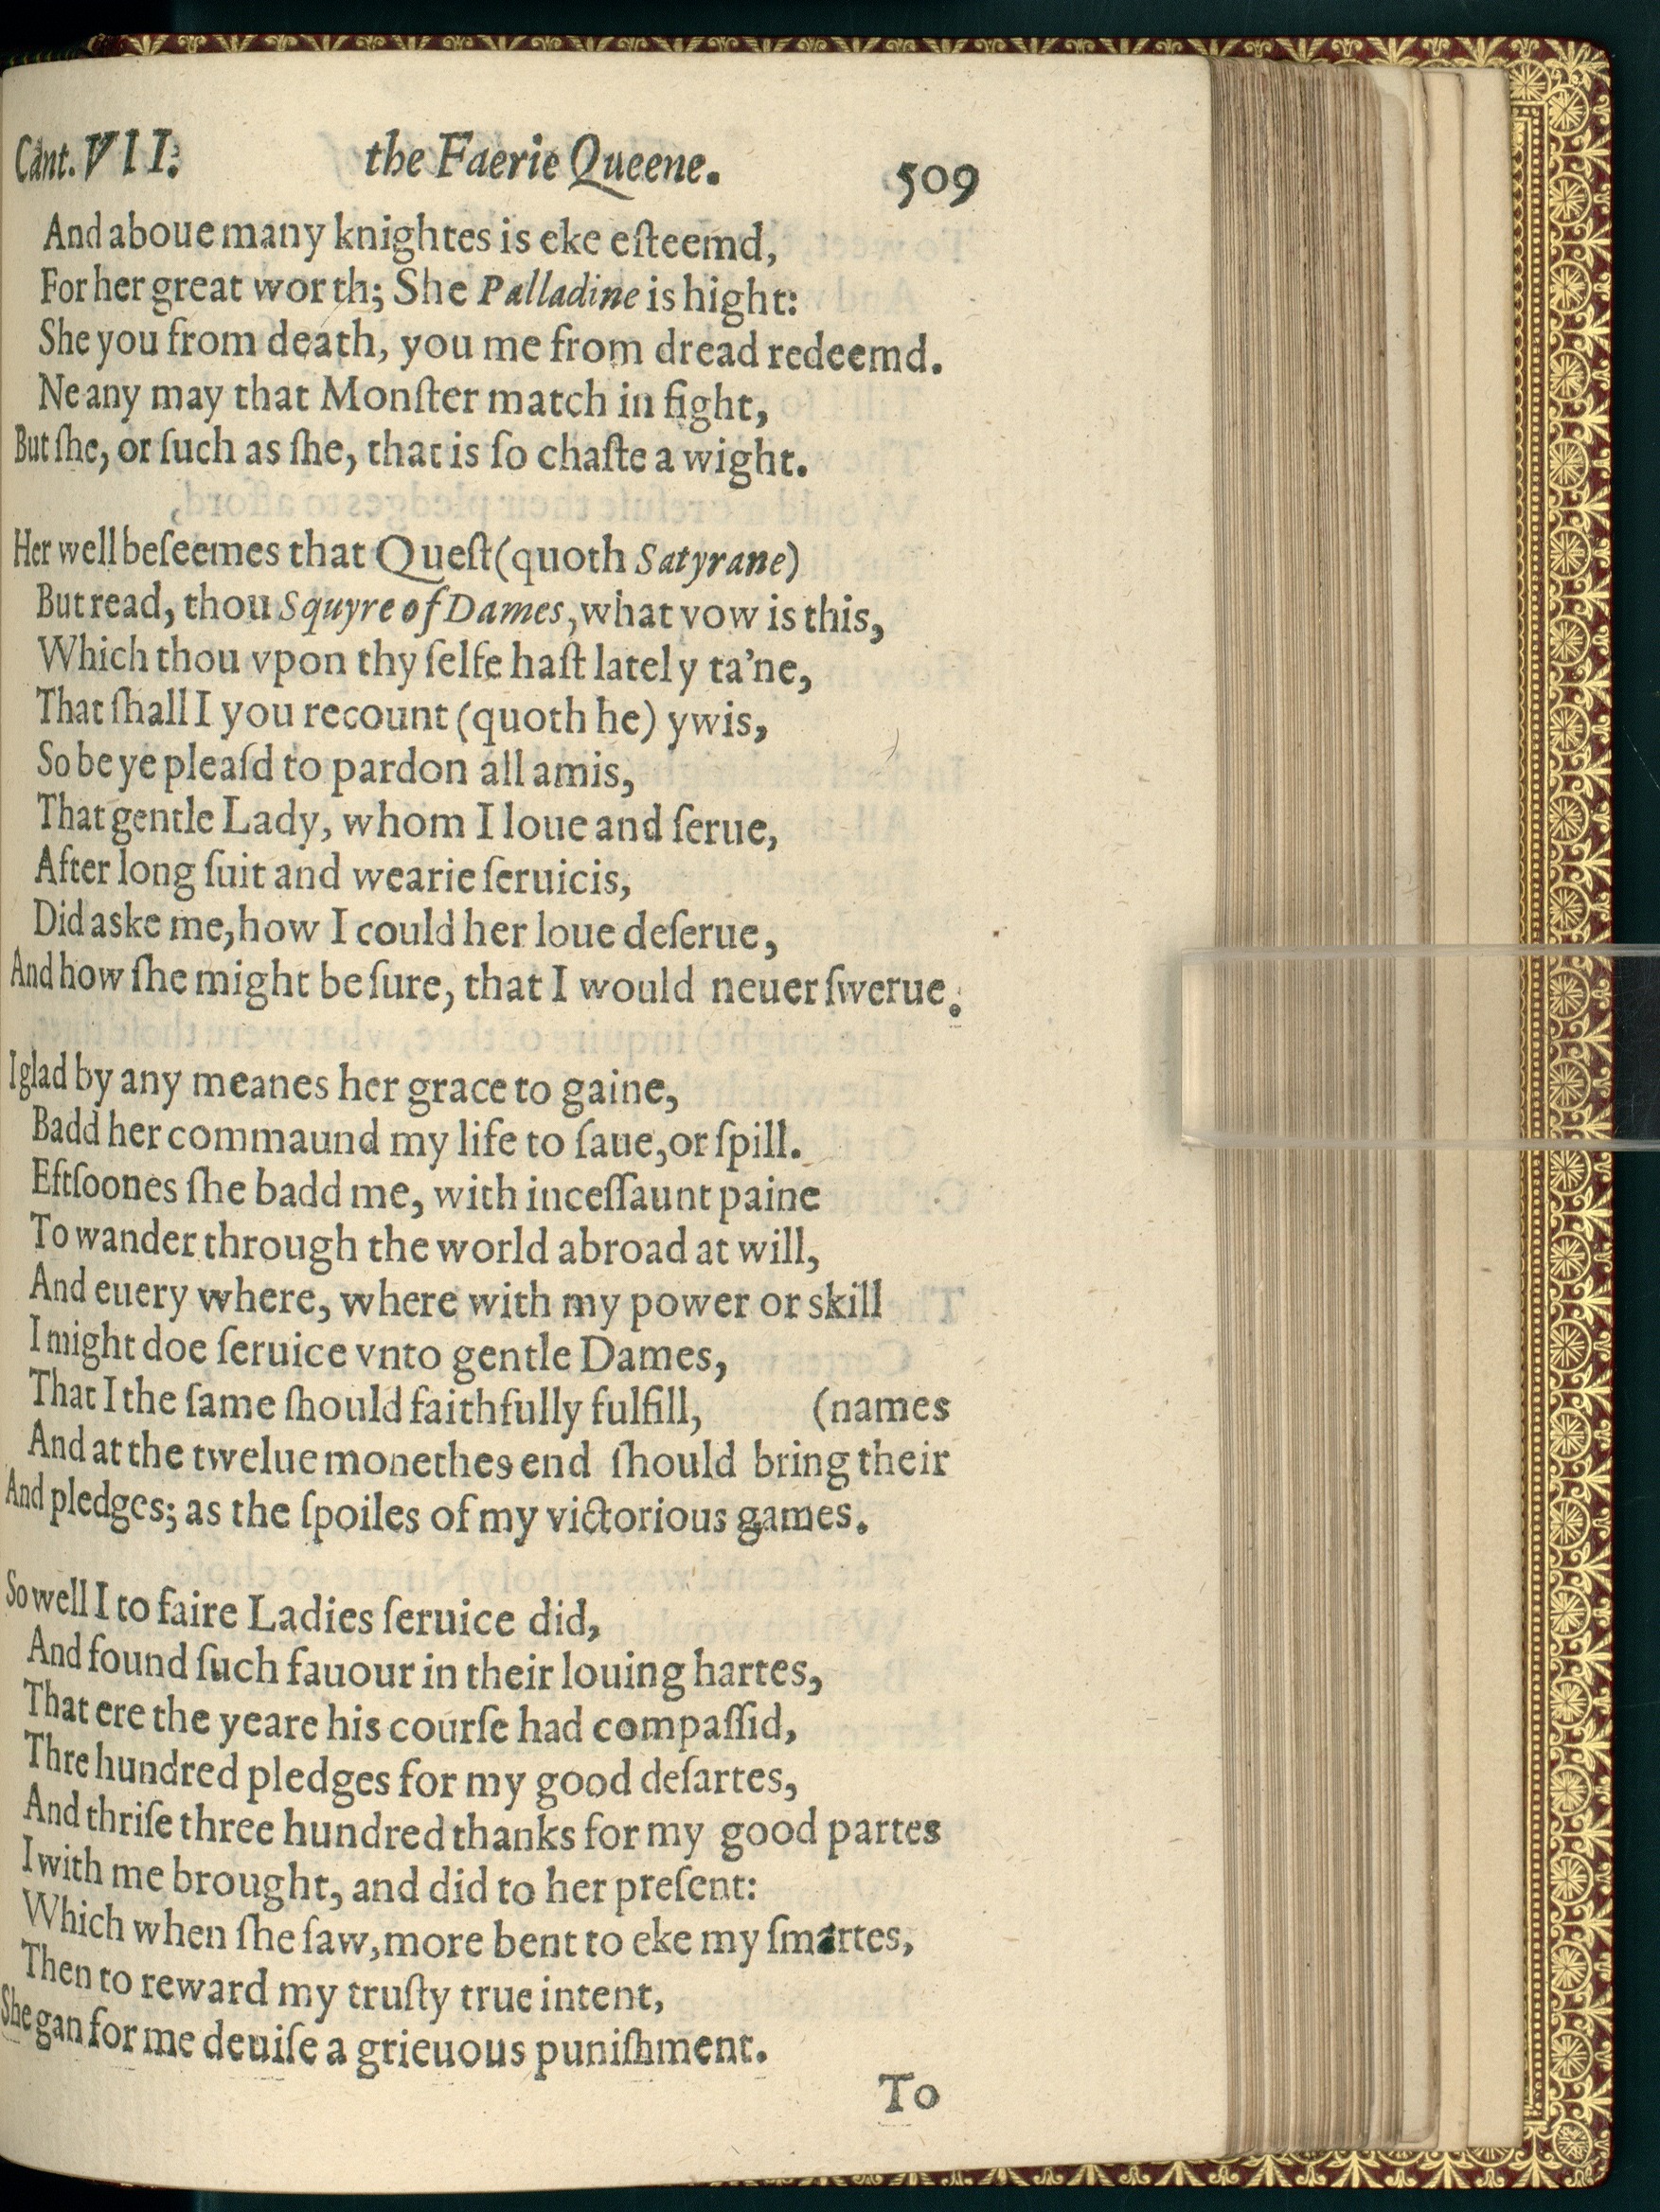 Cant. VII. the Faerie Queene. 509
And aboue many knightes is eke eſteemd,
For her great worth; She Palladine is hight:
She you from death, you me from dread redeemd.
Ne any may that Monſter match in fight,
But ſhe, or ſuch as ſhe, that is ſo chaſte a wight.
Her well beſeemes that Queſt (quoth Satyrane)
But read, thou Squyre of Dames, what vow is this,
Which thou vpon thy ſelfe haſt lately ta'ne,
That ſhall I you recount (quoth he) ywis,
So be ye pleaſd to pardon all amis,
That gentle Lady, whom I loue and ſerue,
After long ſuit and wearie ſeruicis,
Did aske me, how I could her loue deſerue,
And how ſhe might be ſure, that I would neuer ſwerue.
I glad by any meanes her grace to gaine,
Badd her commaund my life to ſaue, or ſpill.
Eftſoones ſhe badd me, with inceſſaunt paine
To wander through the world abroad at will,
And euery where, where with my power or skill
I might doe ſeruice vnto gentle Dames,
That I the ſame ſhould faithfully fulfill, (names
And at the twelue monethes end ſhould bring their
And pledges; as the ſpoiles of my victorious games.
So well I to faire Ladies ſeruice did,
And found ſuch fauour in their louing hartes,
That ere the yeare his courſe had compaſſid,
Thre hundred pledges for my good deſartes,
And thriſe three hundred thanks for my good partes
I with me brought, and did to her preſent:
Which when ſhe ſaw, more bent to eke my ſmartes,
Then to reward my truſty true intent,
She gan for me deuiſe a grieuous puniſhment.
To